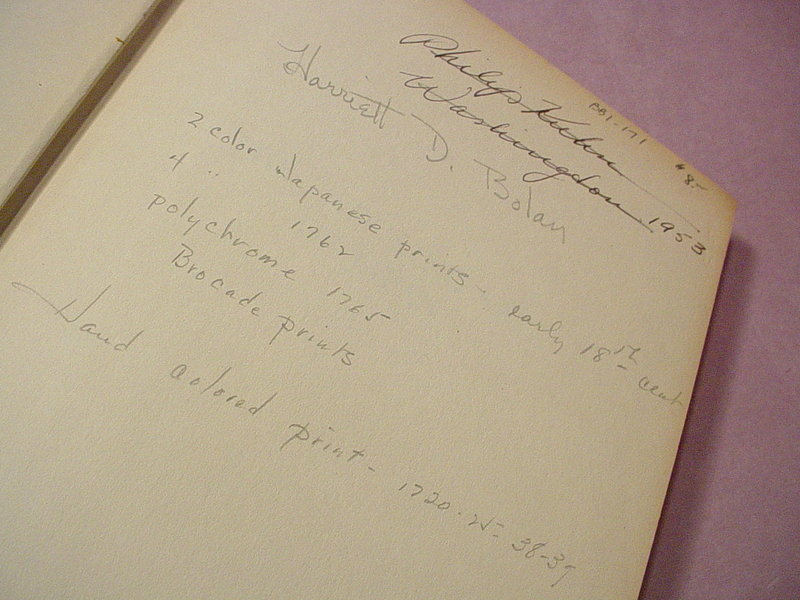 Philip Kuhn
Washington 1953
BB1-171
"8.-
Harriett D. Bolan
2 color Japanese prints - early 18th cent
4 " 1762
polychrome 1765
Brocade prints
Hand colored print - 1720-25- 38-39